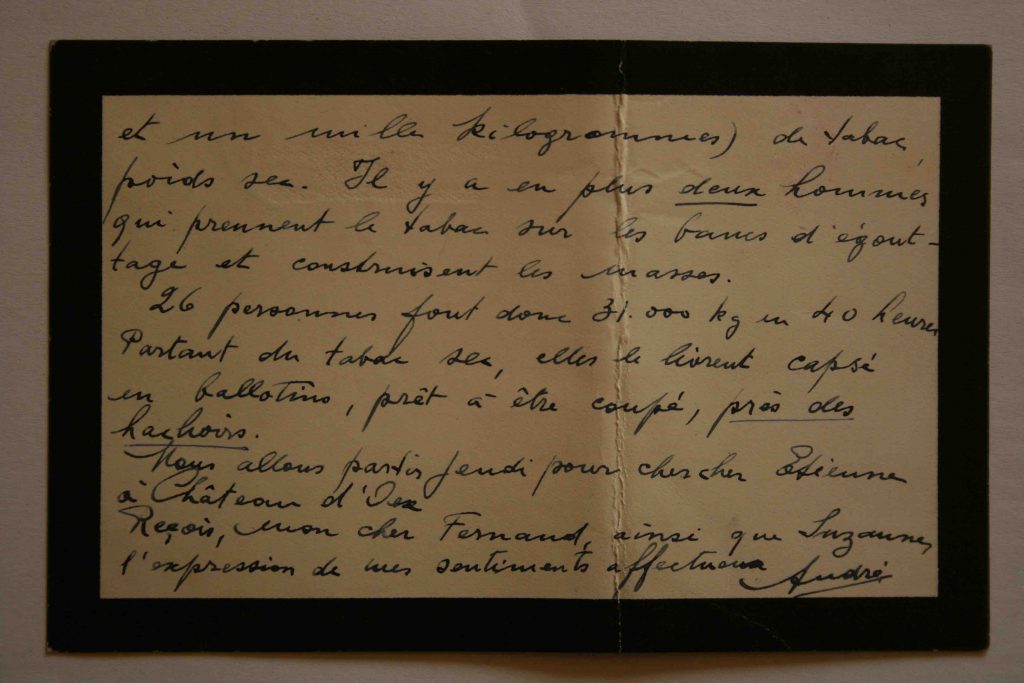 et un mille kilogrammes) de tabac,
poids sec. Il y a en plus deux hommes
qui prennent le tabac sur les bancs d'égout-
tage et construisent les masses.
26 personnes font donc 31.000 kg en 40 heures
Partant du tabac sec, elles le livrent capsé
en ballotins, prêt à être coupé, près des
hachoirs.
Nous allons partir Jeudi pour chercher Etienne
à Château d'Oex
Reçois, mon cher Fernand, ainsi que Suzanne,
l'expression de mes sentiments affectueux
André